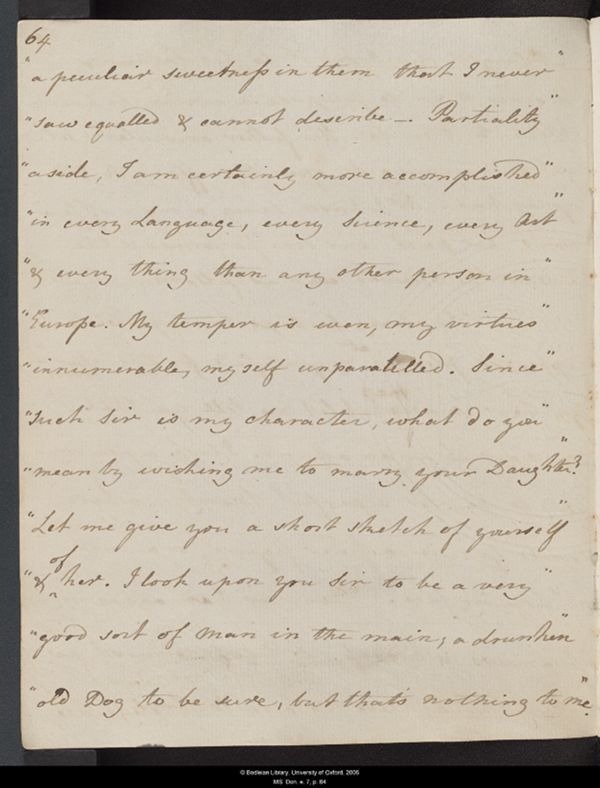 64
"a peculiar sweetness in them that I never"
"saw equalled & cannot describe —. Partiality"
"aside, I am certainly more accomplished"
"in every Language, every Science, every Art"
"& every thing than any other person in"
"Europe. My temper is even, my virtues"
"innumerable, my self unparalelled. Since"
"Such Sir is my character, what do you"
"mean by wishing me to marry your Daughter?"
"Let me give you a short sketch of yourself"
"& of her. I look upon you Sir to be a very"
"good sort of Man in the main; a drunken"
"old Dog to be sure, but that's nothing to me."
© Bodleian Library, University of Oxford, 2005
MS. Don. e. 7, p. 64